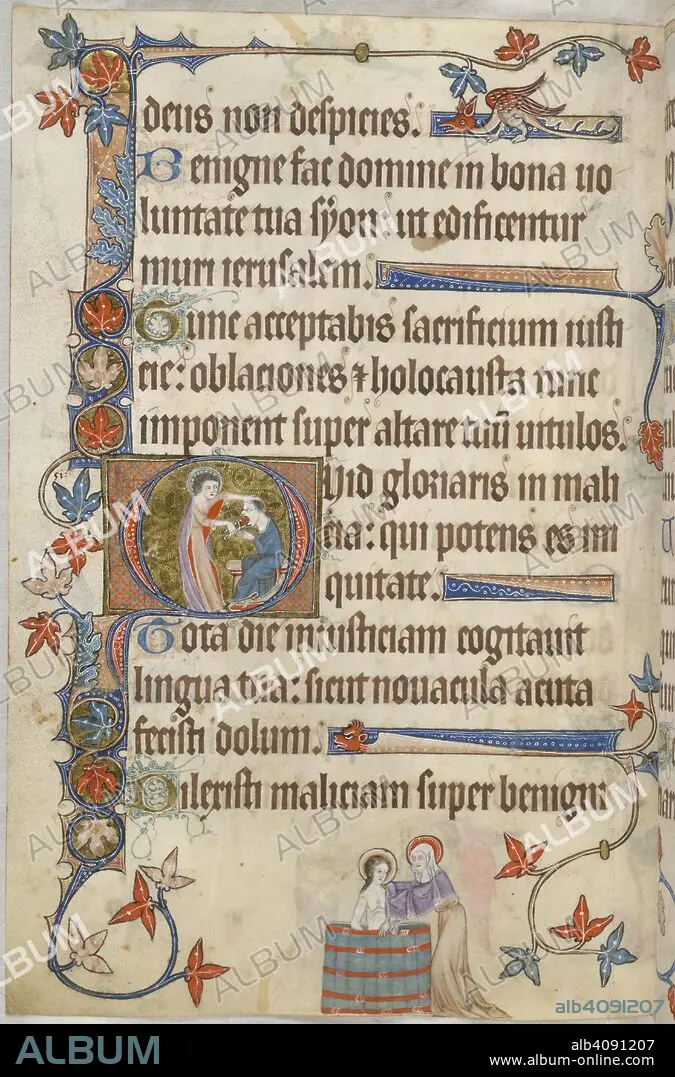 deus non despicies.
Benigne fac domine in bona uo
luntate tua syon: ut edificentur
muri ierusalem.
Tunc acceptabis sacrificium iusti
cie: oblaciones ⁊ holocausta tunc
imponent super altare tuũ uitulos.
Quid gloriaris in mali
cia: qui potens es in i
quitate.
Tota die iniusticiam cogitauit
lingua tua: sicut nouacula acuta
fecisti dolum.
Dilexisti maliciam super benigni
ALBUM
alb4091207
ALBUM
alb4091207
www.album-online.com